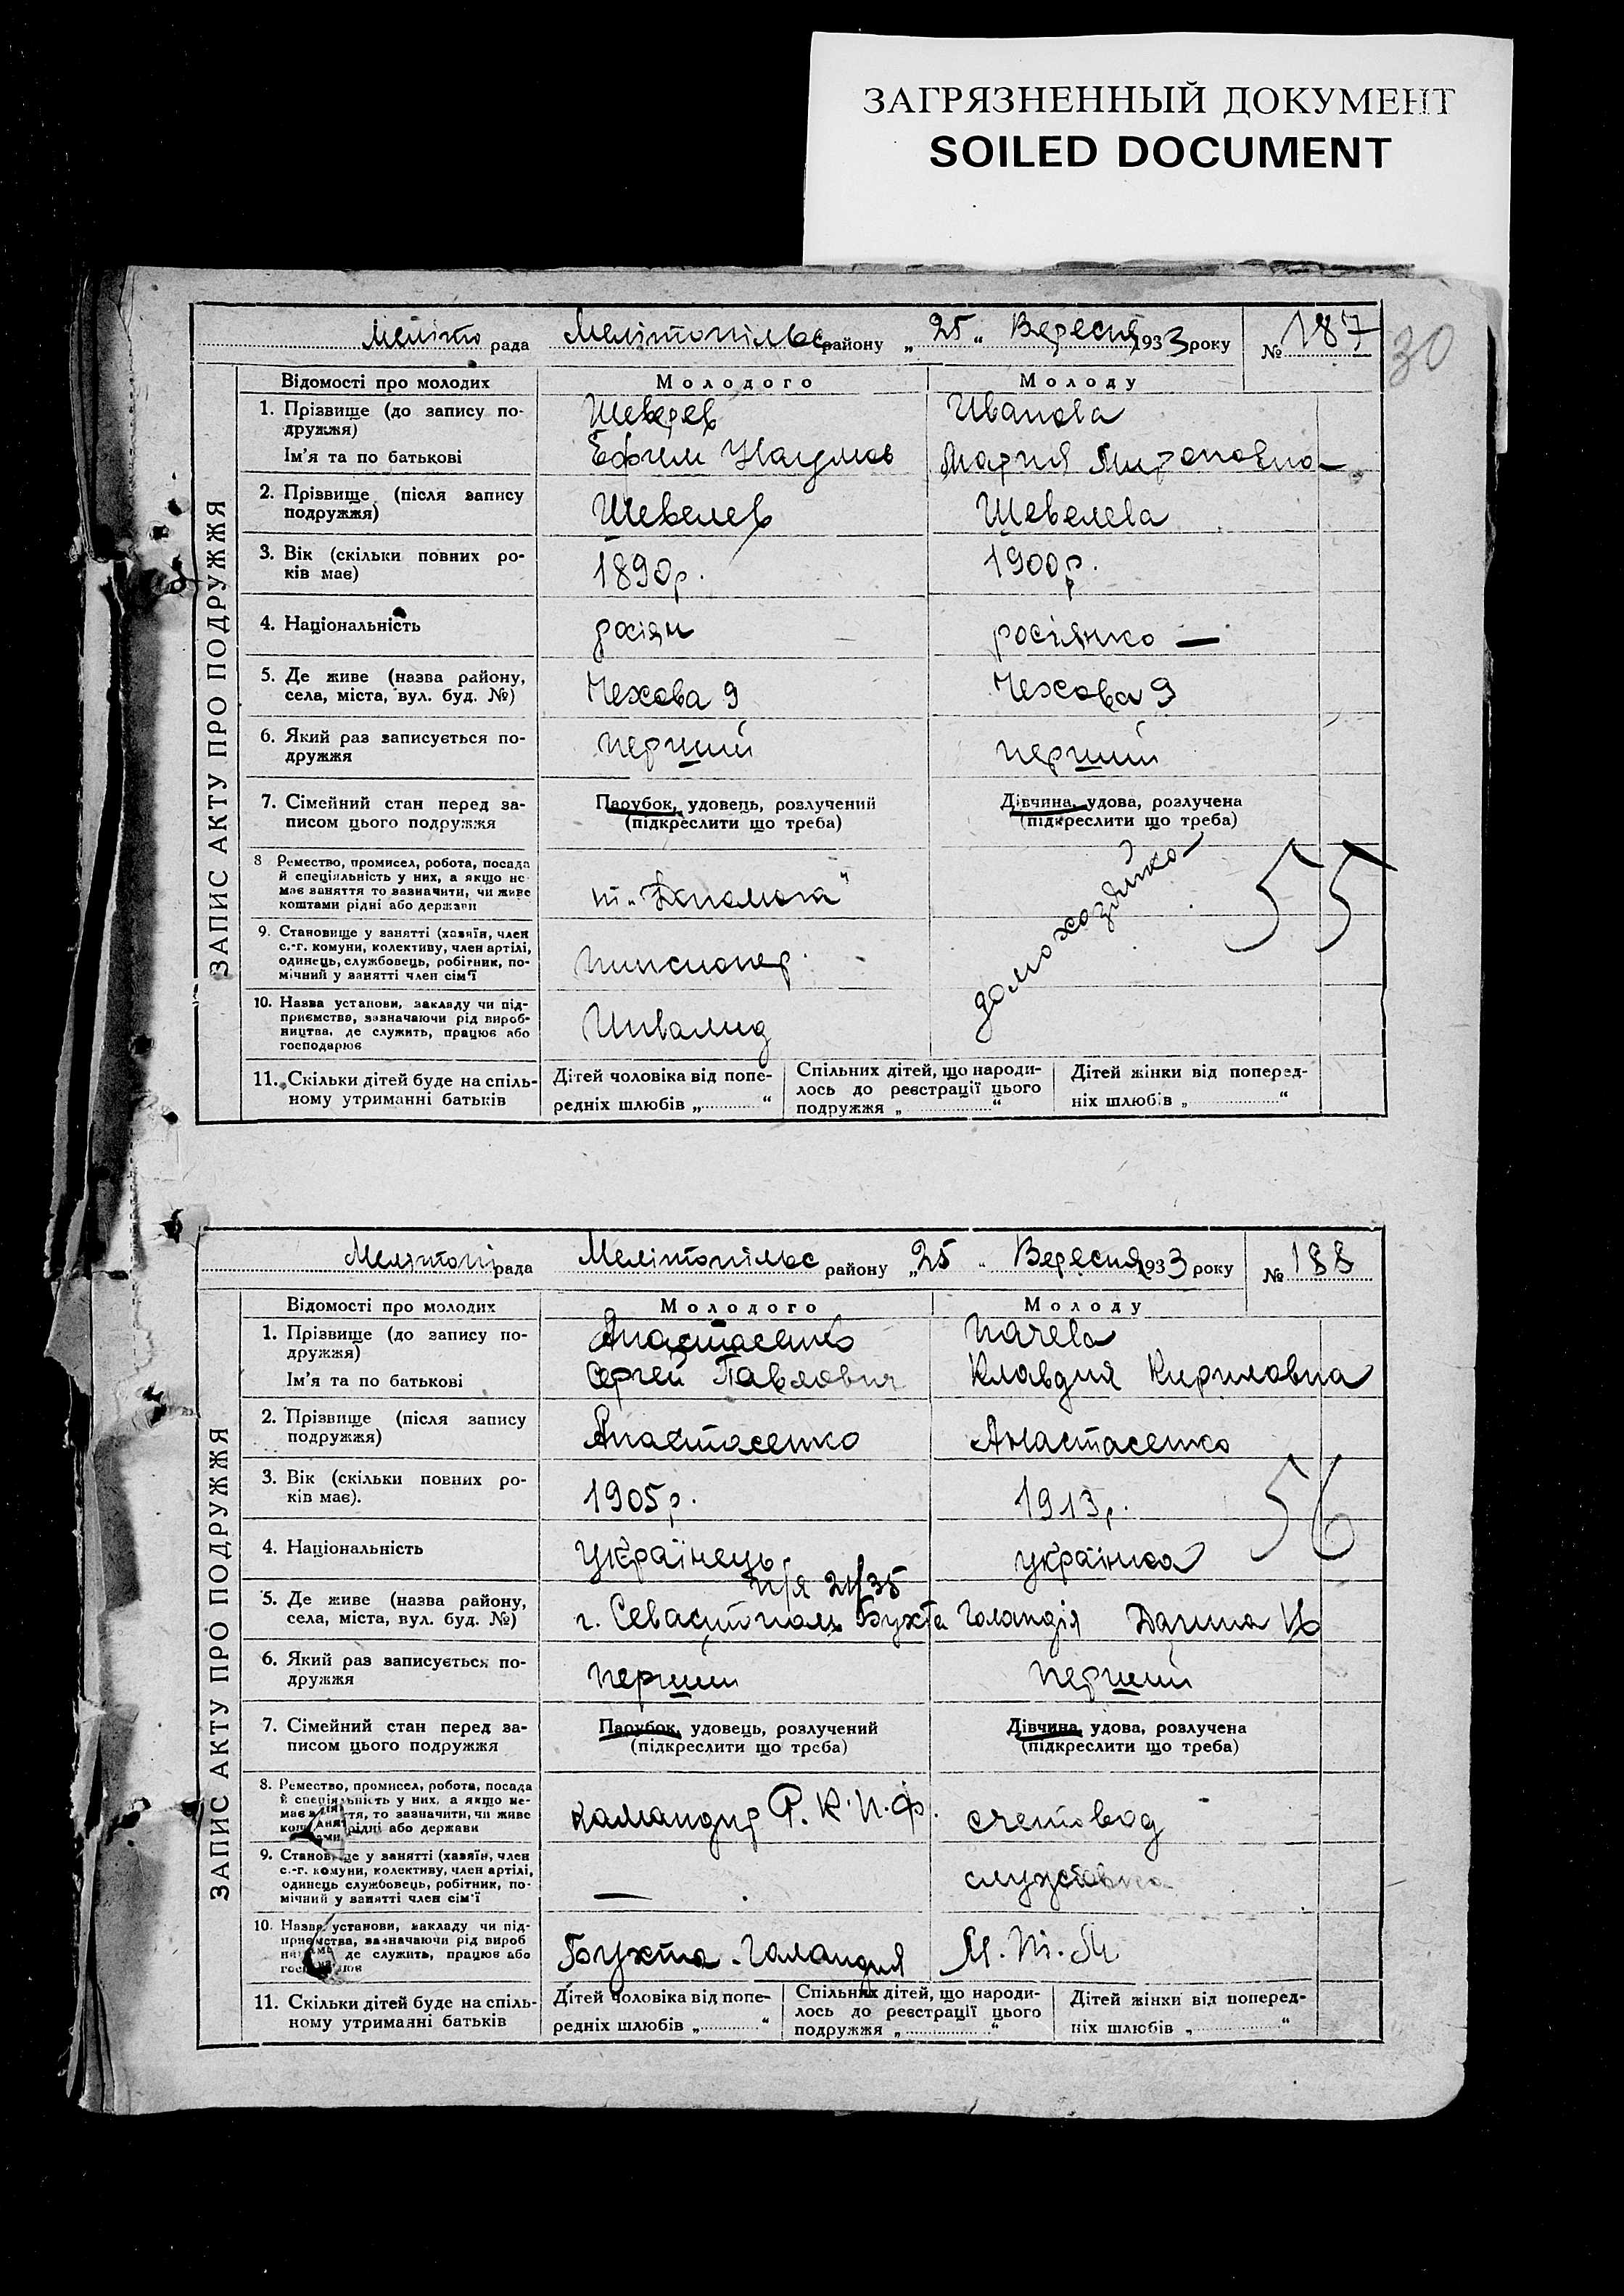 ЗАГРЯЗНЕННЫЙ ДОКУМЕНТ
SOILED DOCUMENT
30
ЗАПИС АКТУ ПРО ПОДРУЖЖЯ
Меліто рада Мелітопільс району „25„ Вересня 1933 року № 187
Відомості про молодих Молодого Молоду
1. Прізвище (до запису по- Шевелев Иванова
дружжя)
Ім'я та по батькові Ефим Наумов Мария Мироновна
2. Прізвище (після запису Шевелев Шевелева
подружжя)
3. Вік (скільки повних ро- 1890р. 1900р.
ків має)
4. Національність росіян росіянка —
5. Де живе (назва району, Чехова 9 Чехова 9
села, міста, вул. буд. №)
6. Який раз записується по- перший перший
дружжя
7. Сімейний стан перед за- Парубок, удовець, розлучений Дівчина, удова, розлучена
писом цього подружжя (підкреслити що треба) (підкреслити що треба)
8 Ремество, промисел, робота, посада
й спеціяльність у них, а якщо не
має заняття то зазначити, чи живе „Допомога" домохозяйка 55
коштами рідні або держави
9. Становище у занятті (хазяїн, член
с.-г. комуни, колективу, член артілі,
одинець, службовець, робітник, по- пинсионер
мічний у занятті член сім'ї
10. Назва установи, закладу чи під-
приємства, зазначаючи рід вироб-
ництва, де служить, працює або Инвалид
господарює
11. Скільки дітей буде на спіль- Дітей чоловіка від попе- Спільних дітей, що народи- Дітей жінки від поперед-
ному утриманні батьків редніх шлюбів „ “ лось до реєстрації цього ніх шлюбів „ “
подружжя „ “
ЗАПИС АКТУ ПРО ПОДРУЖЖЯ
Мелітопі рада Мелітопільс району „25„ Вересня 1933 року № 188
Відомості про молодих Молодого Молоду
1. Прізвище (до запису по- Анастасенко
дружжя)
Ім'я та по батькові Сергей Павлович Клавдия Кириловна
2. Прізвище (після запису Анастасенко Анастасенко
подружжя)
3. Вік (скільки повних ро- 1905р. 1913р. 56
ків має).
4. Національність українець українка
п/я 21/35
5. Де живе (назва району, г. Севастополь Бухта Голандія
села, міста, вул. буд. №)
6. Який раз записується по- перший перший
дружжя
7. Сімейний стан перед за- Парубок, удовець, розлучений Дівчина, удова, розлучена
писом цього подружжя (підкреслити що треба) (підкреслити що треба)
8. Ремество, промисел, робота, посада
й спеціяльність у них, а якщо не-
має заняття, то зазначити, чи живе командир счетовод
рідні або держави
9. Становище у занятті (хазяїн, член
с.-г. комуни, колективу, член артілі,
одинець службовець, робітник, по- — службовка
мічний у занятті член сім'ї
10. Назва установи, закладу чи під-
приємства, зазначаючи рід вироб
де служить, працює або Бухта-Голандия
11. Скільки дітей буде на спіль- Дітей чоловіка від попе- Спільних дітей, що народи- Дітей жінки від поперед-
ному утриманні батьків редніх шлюбів „ “ лось до реєстрації цього ніх шлюбів „ “
подружжя „ “